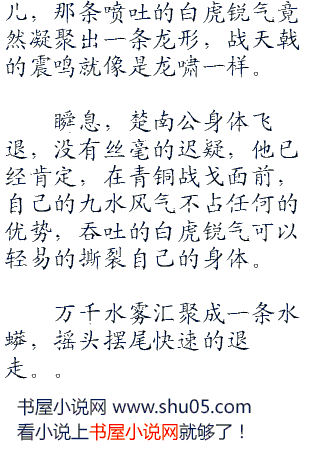 儿，那条喷吐的白虎锐气竟
然凝聚出一条龙形，战天戟
的震鸣就像是龙啸一样。
瞬息，楚南公身体飞
退，没有丝毫的迟疑，他已
经肯定，在青铜战戈面前，
自己的九水风气不占任何的
优势，吞吐的白虎锐气可以
轻易的撕裂自己的身体。
万千水雾汇聚成一条水
蟒，摇头摆尾快速的退
走。。
书屋小说网 www.shu05.com
看小说上书屋小说网就够了！